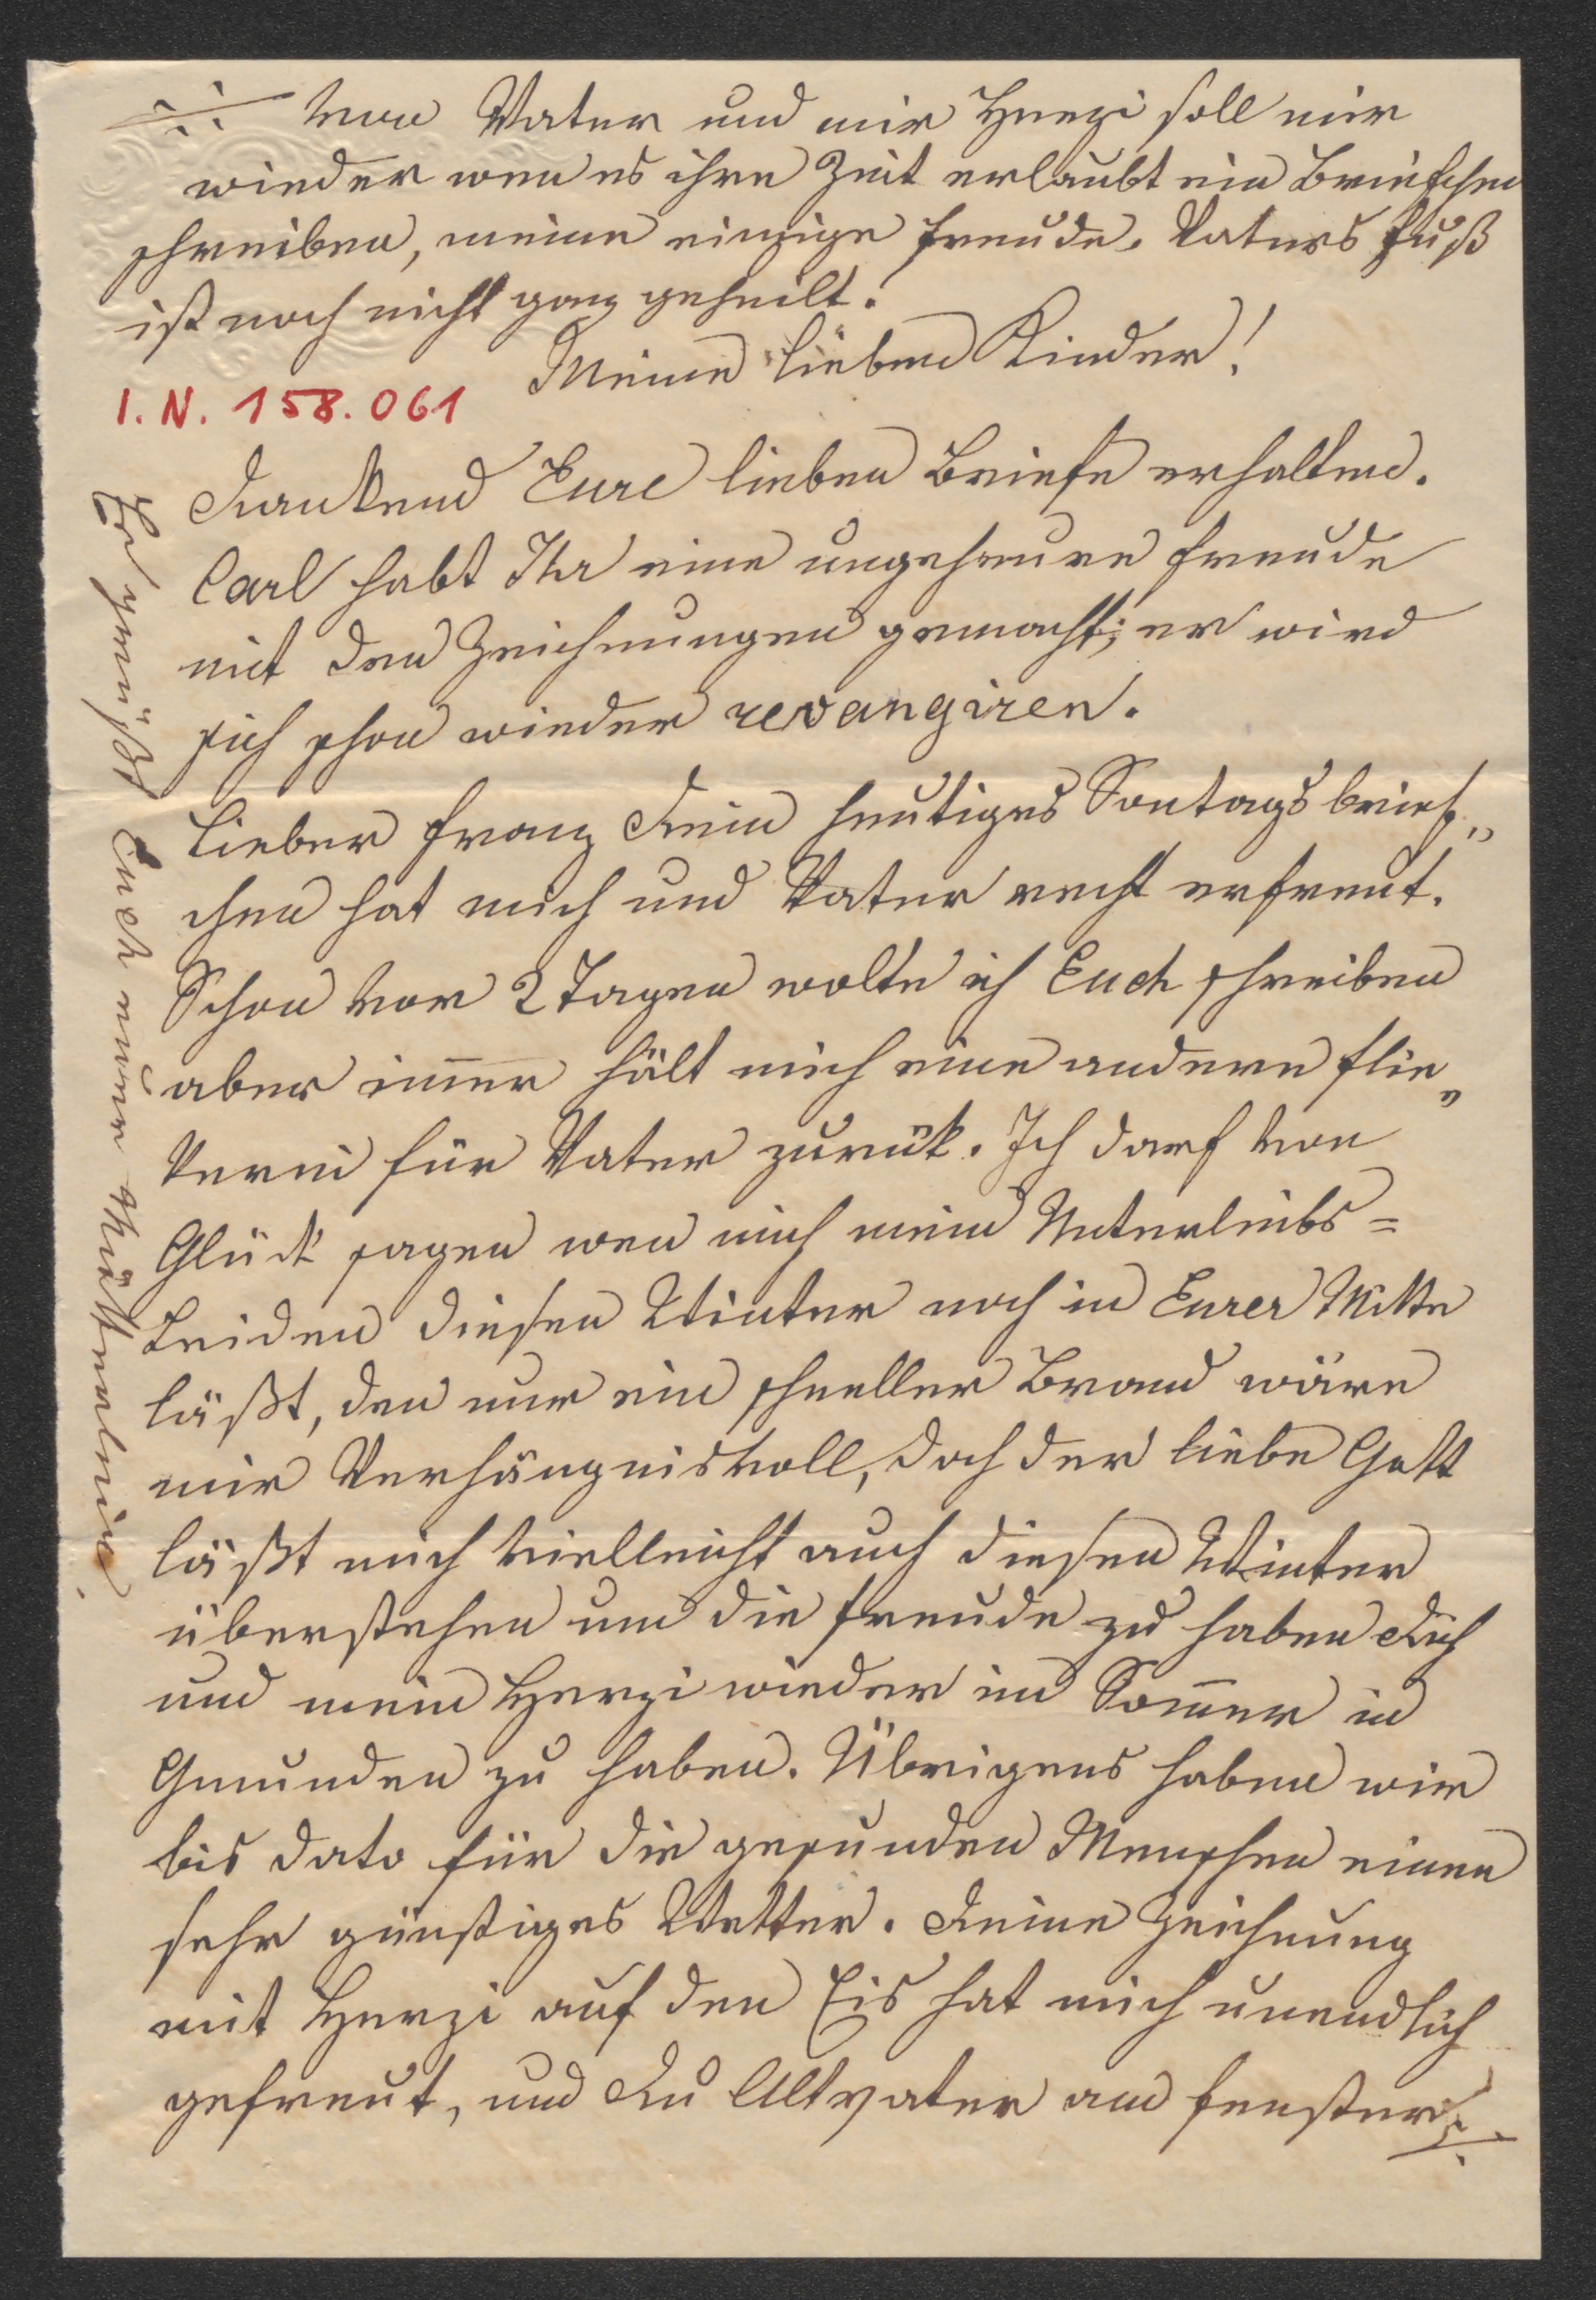 von Vater und mir Herzi soll mir
wieder wen es ihre Zeit erlaubt ein Briefchen
schreiben, meine einzige Freude. Vaters Fuß
ist noch nicht ganz geheilt.
Meine lieben Kinder!
I. N. 158.061
Dankend Eure lieben Briefe erhalten.
Carl habt Ihr eine ungeheure Freude
mit den Zeichnungen gemacht; er wird
sich schon wieder revangiren.
Lieber Franz Dein heutiges Sontagsbrief„
chen hat mich und Vater recht erfreut.
Schon vor 2 Tagen wolte ich Euch schreiben
aber im̄er hält mich eine andere flie„
kerei für Vater zurük. Ich darf von
Glück sagen wen mich mein Unterleibs=
Leiden diesen Winter noch in Eurer Mitte
läßt, den nur ein schneller Brand wäre
mir Verhängnisvoll, doch der liebe Gott
läßt mich vielleicht auch diesen Winter
überstehen um die Freude zu haben Dich
und mein Herzi wieder im Som̄er in
Gmunden zu haben. Übrigens haben wir
bis dato für die gesunden Menschen einen
sehr günstiges Wetter. Deine Zeichnung
mit Herzi auf den Eis hat mich unendlich
gefreut, und Du Altvater am Fenster
Es grüßt Euch eure Mütterlein